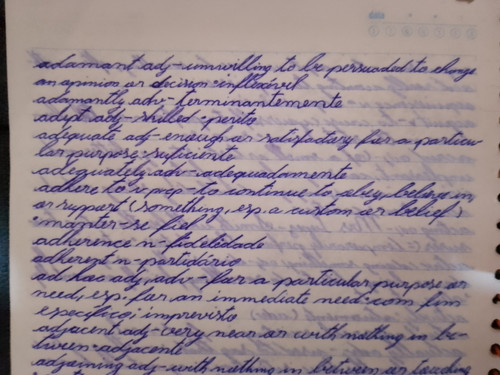 adamant adj-unwilling to be persuaded to change
an opinion or decision=inflexível
adamantly adv-terminantemente
adept adj-skilled=perito
adequate adj-enough or satisfactory for a particu-
lar purpose=suficiente
adequately adv-adequadamente
adhere to v prep-to continue to obey, believe in,
or support (something, esp. a custom or belief)
=manter-se fiel
adherence n-fidelidade
adherent n-partidário
ad hoc adj, adv-for a particular purpose or
need, esp. for an immediate need=com fim
específico; imprevisto
adjacent adj-very near or with nothing in be-
tween=adjacente
adjoining adj-with nothing in between or touching